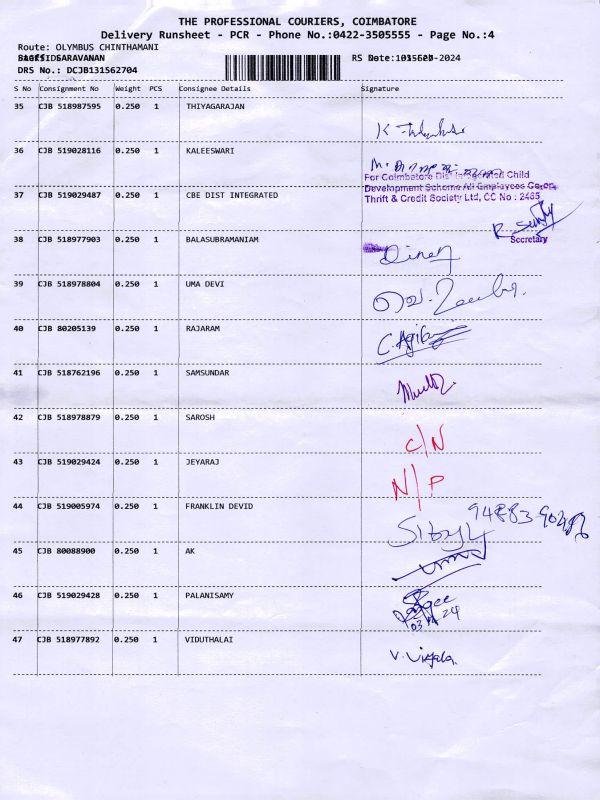 THE PROFESSIONAL COURIERS, COIMBATORE
Delivery Runsheet - PCR - Phone No.:0422-3505555 - Page No.:4
Route: OLYMBUS CHINTHAMANI
SARAVANAN
DRS No.: DCJB131562704
S No Consignment No Weight PCS Consignee Details Signature
35 CJB 518987595 0.250 1 THIYAGARAJAN
36 CJB 519028116 0.250 1 KALEESWARI
For Coimbatore Dist Integrated Child
Development Scheme All Employees Co-op
37 CJB 519029487 0.250 1 CBE DIST INTEGRATED Thrift & Credit Society Ltd, CC No : 2465
Secretary
38 CJB 518977903 0.250 1 BALASUBRAMANIAM
39 CJB 518978804 0.250 1 UMA DEVI
40 CJB 80205139 0.250 1 RAJARAM
41 CJB 518762196 0.250 1 SAMSUNDAR
42 CJB 518978879 0.250 1 SAROSH
C/N
43 CJB 519029424 0.250 1 JEYARAJ
N/P
44 CJB 519005974 0.250 1 FRANKLIN DEVID
45 CJB 80088900 0.250 1 AK
46 CJB 519029428 0.250 1 PALANISAMY
47 CJB 518977892 0.250 1 VIDUTHALAI